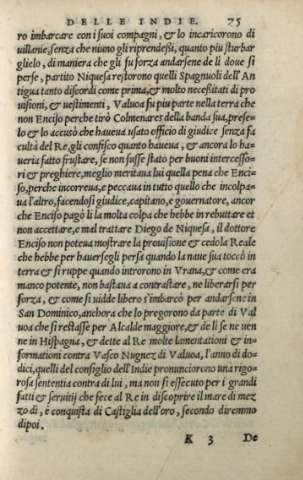 DELLE INDIE. 75
ro imbarcare con i suoi compagni, & lo incaricorono di
uillanie, senza che niuno gli riprendessi, quanto piu sturbar
glielo, di maniera che gli fu forza andarsene di li doue si
perse, partito Niquesa restorono quelli Spagnuoli dell'An
tigua tanto discordi come prima, & molto necessitati di pro
uisioni, & uestimenti, Valuoa fu piu parte nella terra che
non Enciso perche tirò Colmenares della banda sua, prese-
lo & lo accusò che haueua usato officio di giudice senza fa
cultà del Re, gli confiscò quanto haueua, & ancora lo ha-
ueria fatto frustare, se non fusse stato per buoni intercesso-
ri & preghiere, meglio meritaua lui quella pena che Enci-
so, perche incorreua, e peccaua in tutto quello che incolpa-
ua l'altro, facendosi giudice, capitano, e gouernatore, ancor
che Enciso pagò li la molta colpa che hebbe in rebuttare et
non accettare, e mal trattare Diego de Niquesa, il dottore
Enciso non poteua mostrare la prouisione & cedola Reale
che hebbe per hauersegli persa quando la naue sua toccò in
terra & si ruppe quando introrono in Vraua, & come era
manco potente, non bastaua a contrastare, ne liberarsi per
forza, & come si uidde libero s'imbarcò per andarsene in
San Dominico, anchora che lo pregorono da parte di Val
uoa che si restasse per Alcalde maggiore, & de li se ne uen
ne in Hispagna, & dette al Re molte lamentationi & in-
formationi contra Vasco Nugnez di Valuoa, l'anno di do-
dici, quelli del consiglio dell'Indie pronunciorono una rigo-
rosa sententia contra di lui, ma non si essecuto per i grandi
fatti & seruitij che fece al Re in discoprire il mare di mez
zo di, e conquista di Castiglia dell'oro, secondo diremmo
dipoi.
K 3 De